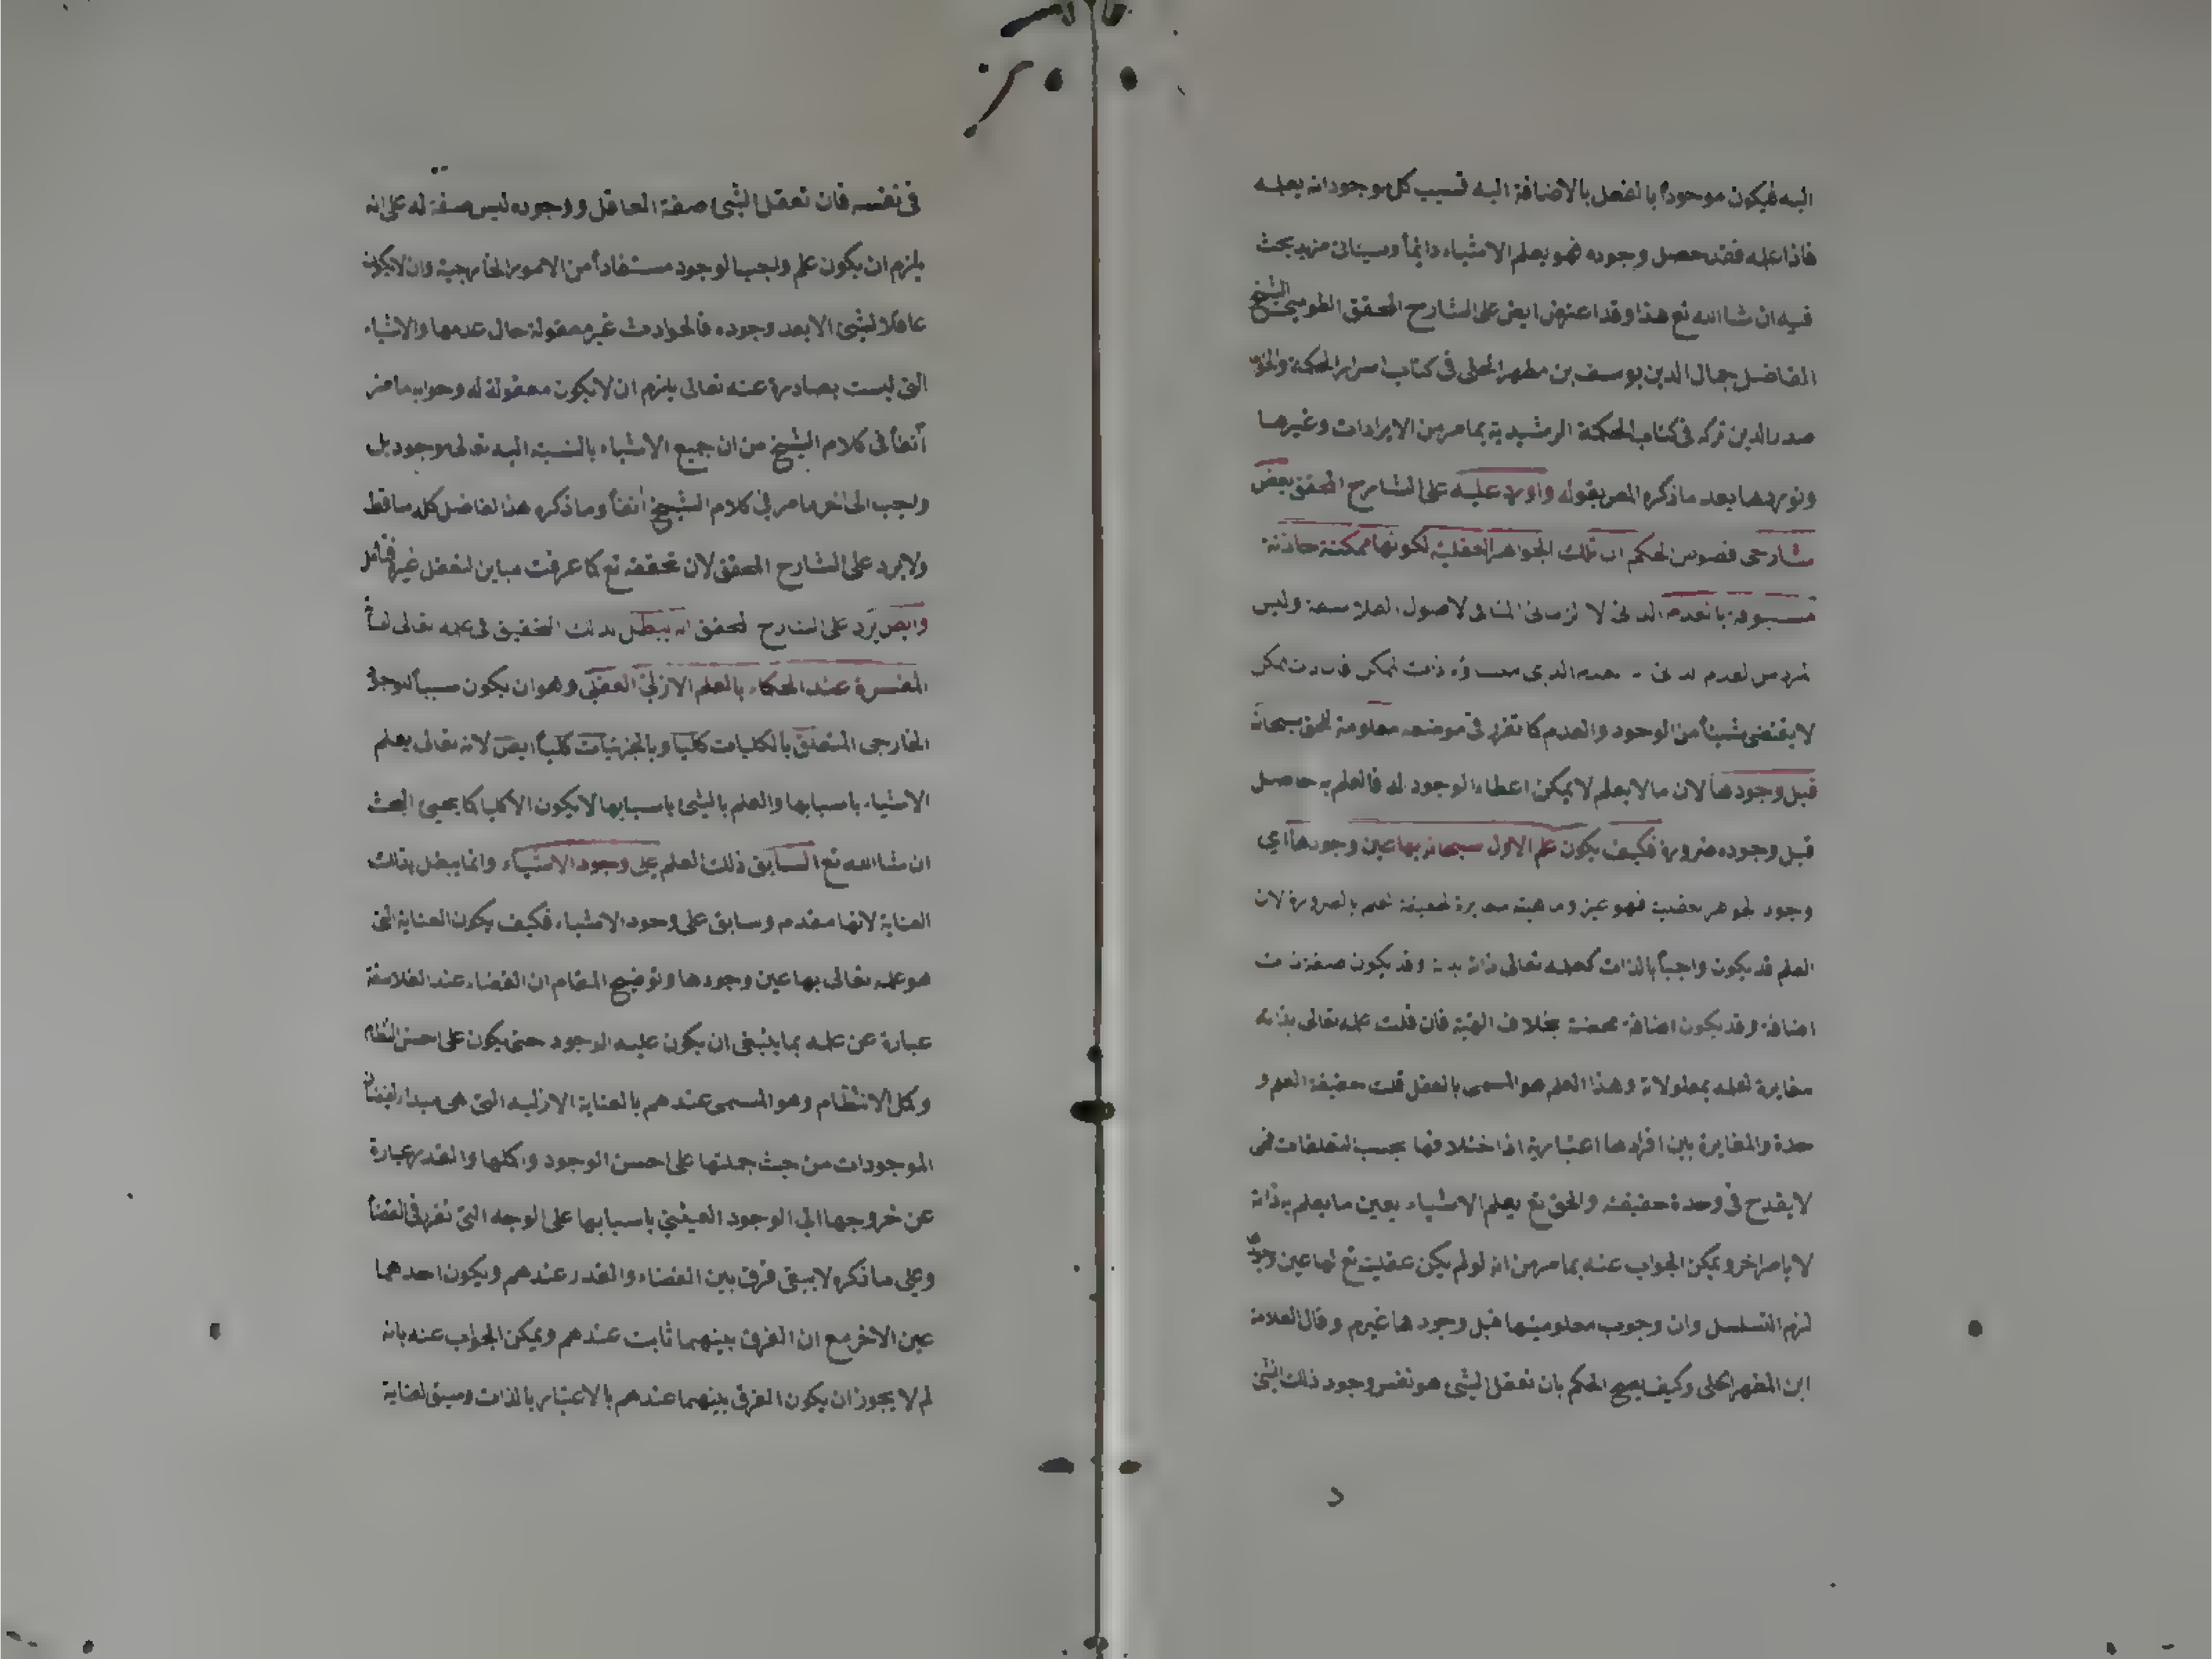 اليه فيكون موجوداً بالفعل بالاضافة اليه فسبب كل موجود انه يعلمه
فاذا علمه فقد حصل وجوده فهو يعلم الاشياء دائماً وسياتى مزيد بحث
فيه ان شاالله تع هذا وقد اعترض ايض على الشارح المحقق الطوسى الشيخ
الفاضل جمال الدين يوسف بن مطهر الحلى فى كتاب اسرار الحكمة
صدر الدين تركه فى كتاب الحكمة الرشيدية بما مر من الايرادات وغيرها
ونوردها بعد ما ذكره المص بقوله واورد عليه على الشارح المحقق بعض
شارحى فصوص الحكم ان تلك الجواهر العقلية لكونها ممكنة حادثة
مسبوقة بالعدم الذاتى لا الزمانى المنافى لاصول الفلاسفة وليس
المراد من العدم الذاتى
لا يقتضى شيئاً من الوجود والعدم كما تقرر فى موضعه معلومة للحق سبحانه
قبل وجودها لان ما لا يعلم لا يمكن اعطاء الوجود له فالعلم به حاصل
قبل وجوده ضرورة فكيف يكون علم الاول سبحانه بها عين وجودها اى
وجود الجواهر العقلية فهو عين وماهيته مغايرة لحقيقة العلم بالضرورة لان
العلم قد يكون واجباً بالذات كعلمه تعالى ذاته بذاته وقد يكون صفة ذات
اضافة وقد يكون اضافة محضة بخلاف الهية فان قلت علمه تعالى بذاته
مغايرة لعلمه بمعلولاته وهذا العلم هو المسمى بالعقل قلت حقيقة العلم و
حدة والمغايرة بين افرادها اعتبارية اذ اختلافها بحسب المتعلقات فهى
لا يقدح فى وحدة حقيقته والحق تع يعلم الاشياء بعين ما يعلم به ذاته
لا بامر اخر ويمكن الجواب عنه بما مر من انه لو لم يكن عقليته تع لها عين وجودها
لزم التسلسل وان وجوب معلوميتها قبل وجودها غير م وقال العلامة
ابن المطهر الحلى وكيف يصح الحكم بان تعقل الشئ هو نفس وجود ذلك الشئ
فى نفسه فان تعقل الشئ صفة العاقل ووجوده ليس صفة له على انه
يلزم ان يكون علم واجب الوجود مستفاداً من الامور الخارجية وان لا يكون
عاقلا لشئ الا بعد وجوده فالحوادث غير معقولة حال عدمها والاشياء
التى ليست بصادرة عنه تعالى يلزم ان لا يكون معقولة له وجوابه ما مر
آنفاً فى كلام الشيخ من ان جميع الاشياء بالنسبة اليه تعالى موجود بل
واجب الى اخر ما مر فى كلام الشيخ انفاً وما ذكره هذا الفاضل كله ساقط
ولا يرد على الشارح المحقق لان تحققه تع كما عرفت مباين لتعقل غيره فتامل
وايض يرد على الشارح المحقق انه يبطل بذلك التحقيق فى علمه تعالى
المفسرة عند الحكماء بالعلم الازلى العقلى وهو ان يكون سبباً لوجود
الخارجى المتعلق بالكليات كلياً وبالجزئيات كلياً ايض لانه تعالى يعلم
الاشياء باسبابها والعلم بالشئ باسبابها لا يكون الا كليا كما يجيئ البحث
ان شاالله تع السابق ذلك العلم على وجود الاشياء وانما يبطل بذلك
العناية لانها مقدم وسابق على وجود الاشياء فكيف يكون العناية التى
هو علمه تعالى بها عين وجودها وتوضيح المقام ان القضاء عند الفلاسفة
عبارة عن علمه بما ينبغى ان يكون عليه الوجود حتى يكون على احسن النظام
وكمل الانتظام وهو المسمى عندهم بالعناية الازلية التى هى مبداء لفيضان
الموجودات من حيث جملتها على احسن الوجود واكلها والقدر عبارة
عن خروجها الى الوجود العينى باسبابها على الوجه التى تقرر فى القضا
وعلى ما ذكره لا يبقى فرق بين القضاء والقدر عندهم ويكون احدهما
عين الاخر مع ان الفرق بينهما ثابت عندهم ويمكن الجواب عنه بانه
لم لا يجوز ان يكون الفرق بينهما عندهم بالاعتبار بالذات وسبق لعناية